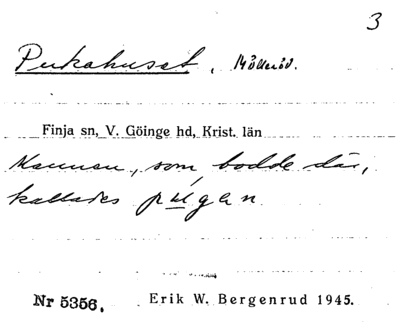 3
Pukahuset, Mölleröd.
Finja sn, V. Göinge hd, Krist. län
Mannen, som bodde där,
kallades pugen
Nr 5356.
Erik W. Bergenrud 1945.